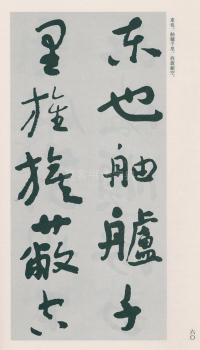 東也，舳艫千里，旌旗蔽空。
東也舳艫千
里旌旗蔽空
六〇